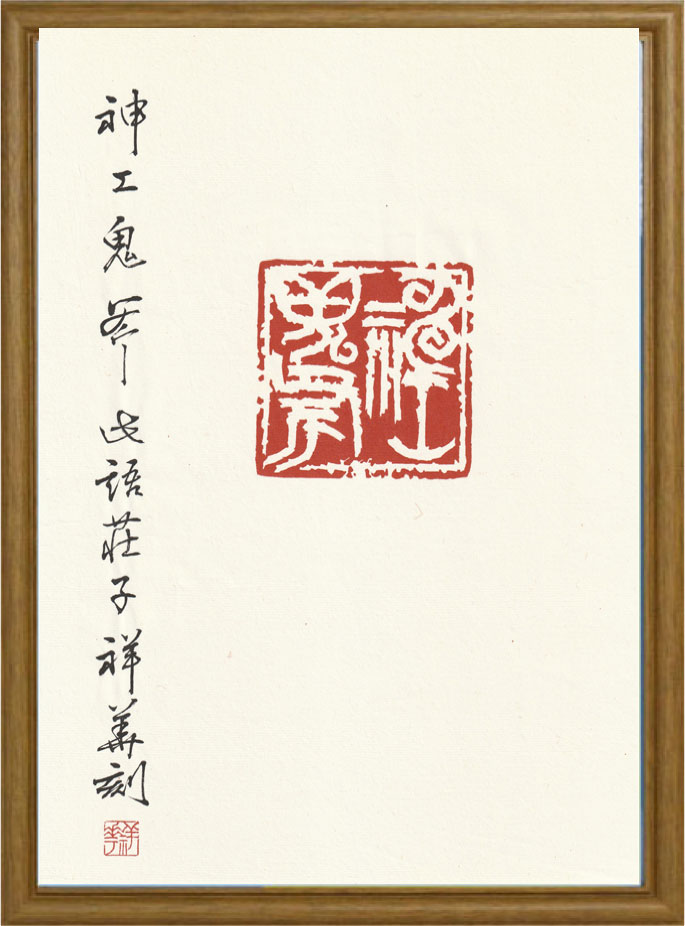 神工鬼斧
神工鬼斧此语莊子祥華刻
祥華